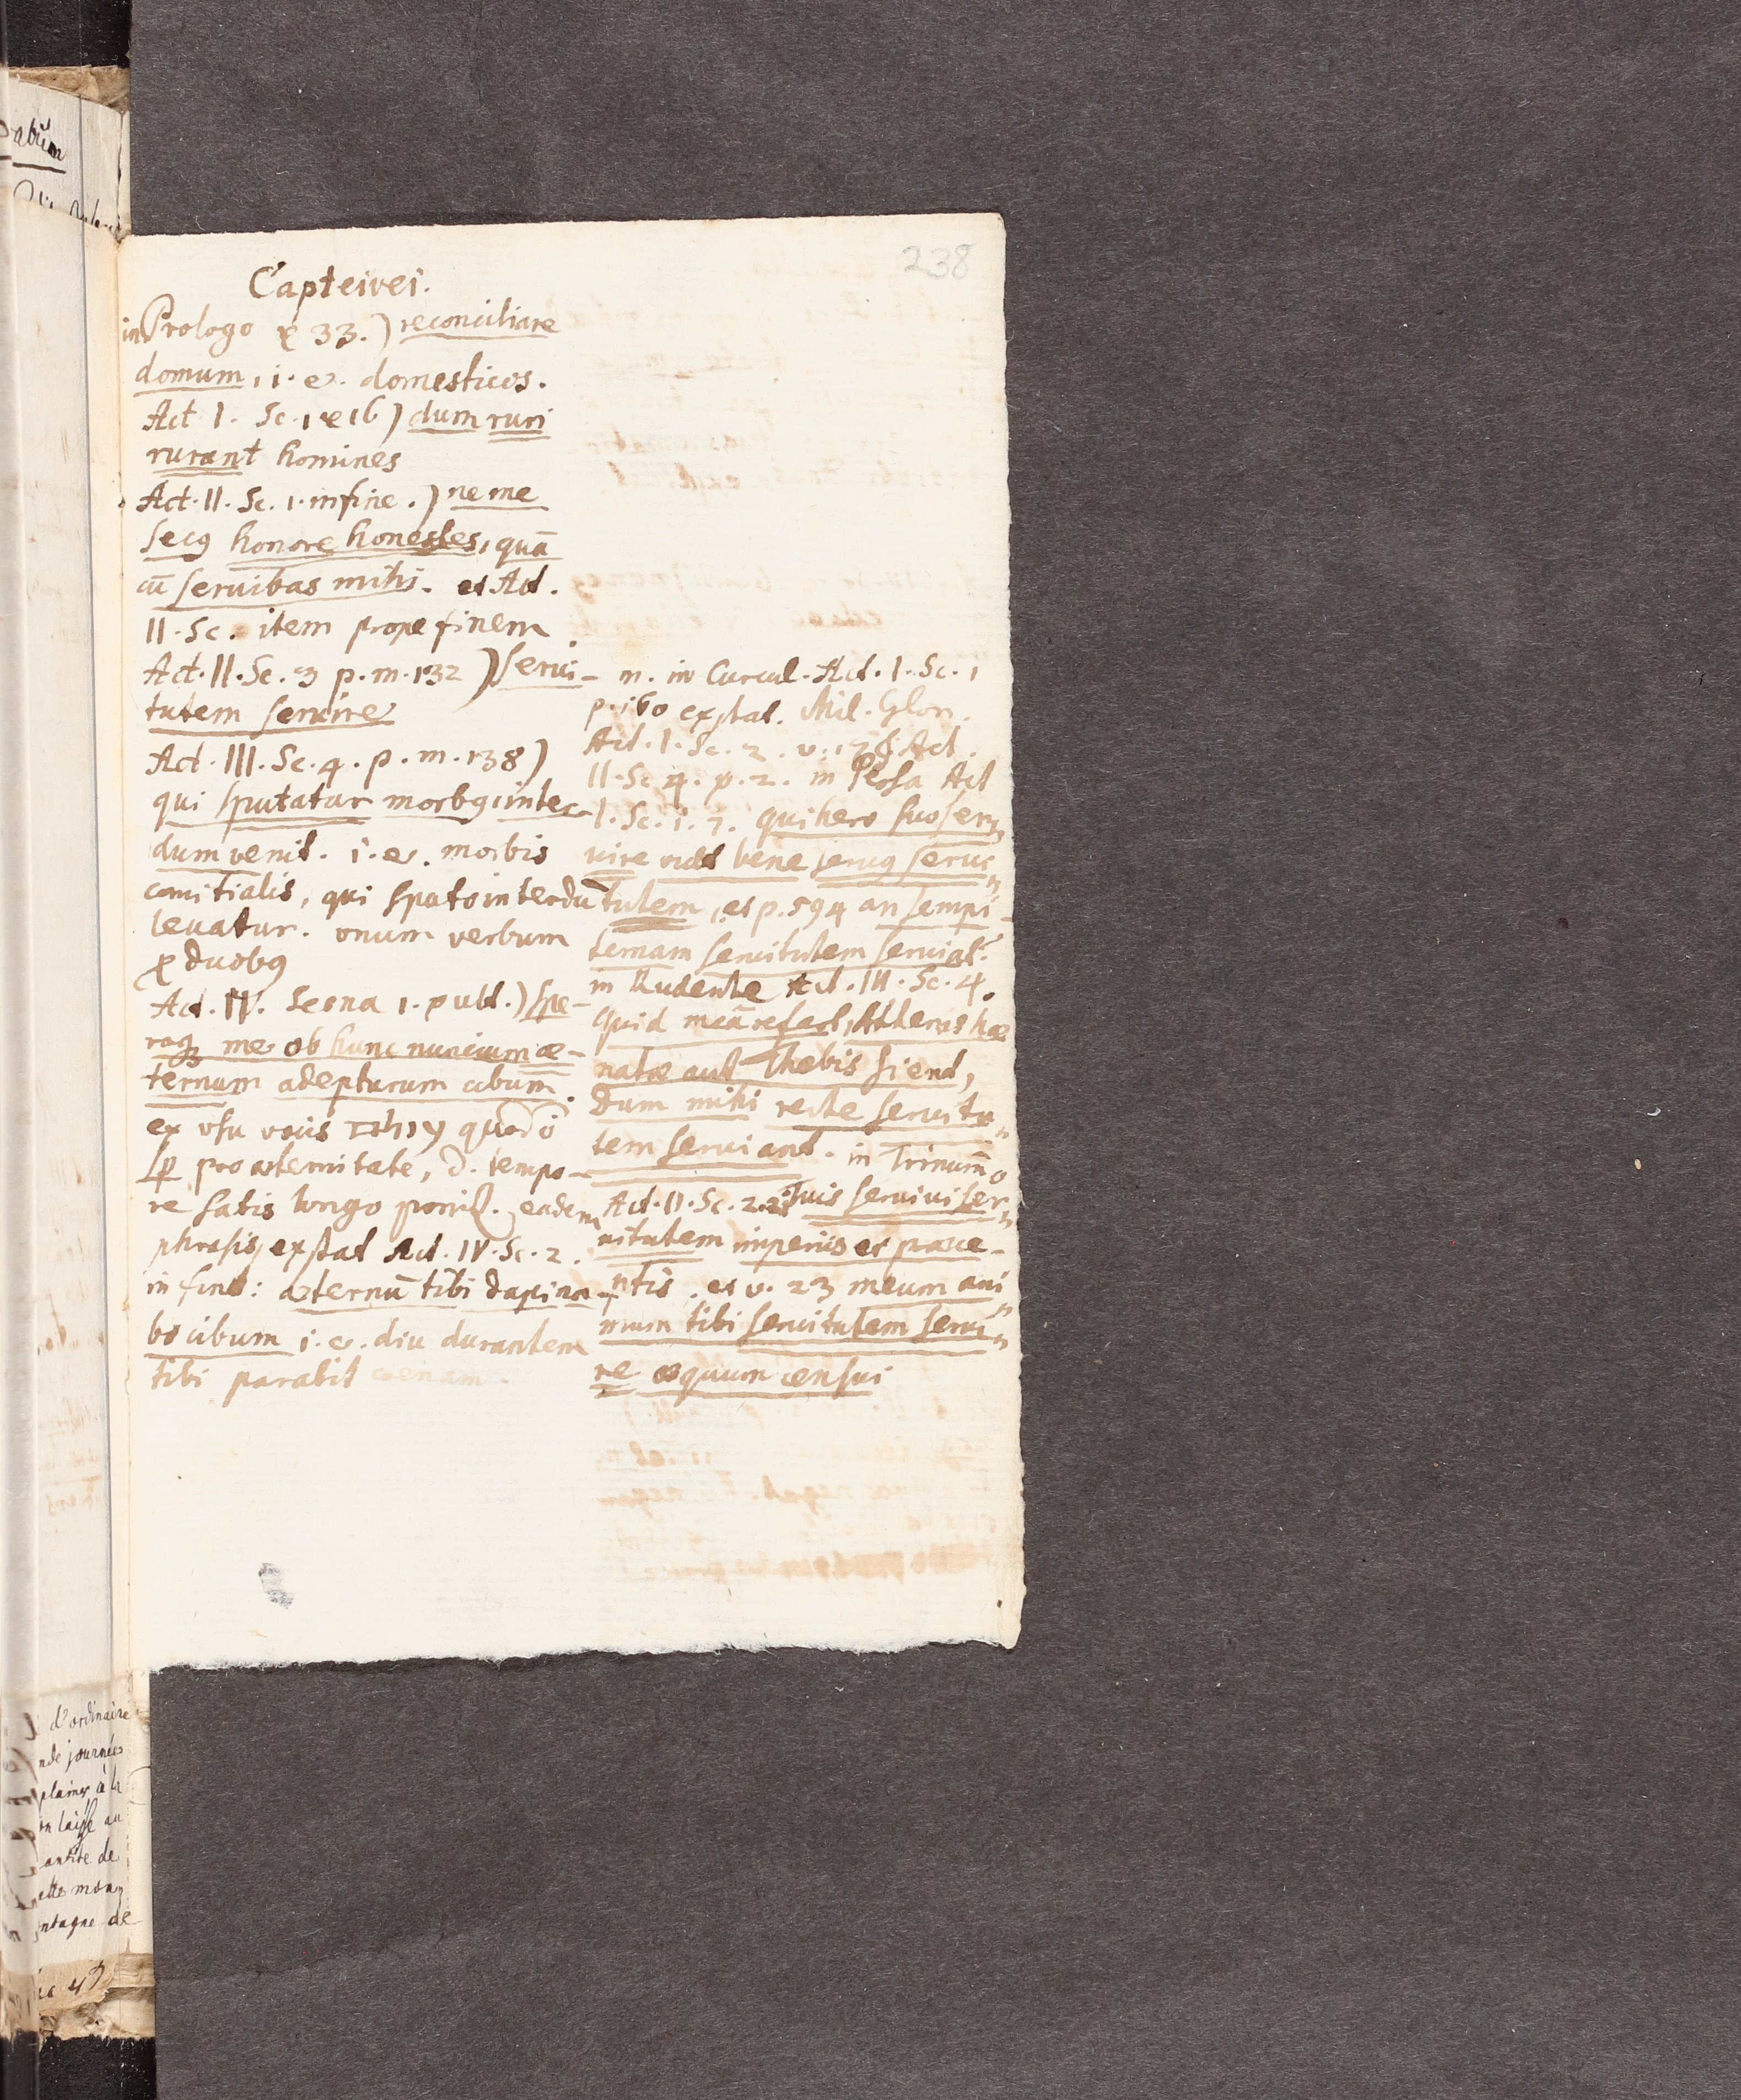 238
Capteivei.
in Prologo v 33.) reconciliare
domum, i. e. domesticos.
Act. I. Sc. 1 v 16) dum ruri
rurant homines
Act. II. Sc. 1. in fine.) ne me
secꝯ honore honestes, quā
cū seruibas mihi. et Act.
II. Sc. item prope finem
Act. II. Sc. 3 p. m. 132) serui-
tutem seruire
Act. III. Sc. 4. p. m. 138)
qui sputatur morbꝯ inter-
dum venit. i. e. morbis
comitialis, qui sputo interdū
leuatur. unum verbum
p duobꝯ
Act. IV. Scena 1. p ult.) spe-
roqꝫ me ob hunc nuncium æ-
ternum adepturum cibum.
ex usu vocis
pro æternitate, d. tempo-
re satis longo ponit. eadem
phrasis exstat Act. IV. Sc. 2.
in fine: æternū tibi dapina-
bo cibum i. e. diu durantem
tibi parabit coenam.
n. in Curcul. Act. I. Sc. 1
p. 160 exstat. Mil. Glor.
Act. I. Sc. 2. v. Act.
II. Sc 4. p. 2. in Persa Act
I. Sc. 1. 7. qui hero suo ser-
uire vult bene seruꝯ serui-
tutem, et p. 594 an sempi-
ternam seruitutem seruiat?
in Rudente Act. III. Sc. 4.
quid meā refert, Athenis hæ
natæ aut Thebis sient,
Dum mihi recte seruitu-
tem seruiant. in Trinumō
Act. II. Sc. 2. 21 Tuis seruiui ser-
uitutem imperiis et præce-
ptis. et v. 23 meum ani
mum tibi seruitutem serui-
re æquum censui
abūm
d'ordinaire
nde journées
plaines à la
on laisse au
antité de
ntagne de